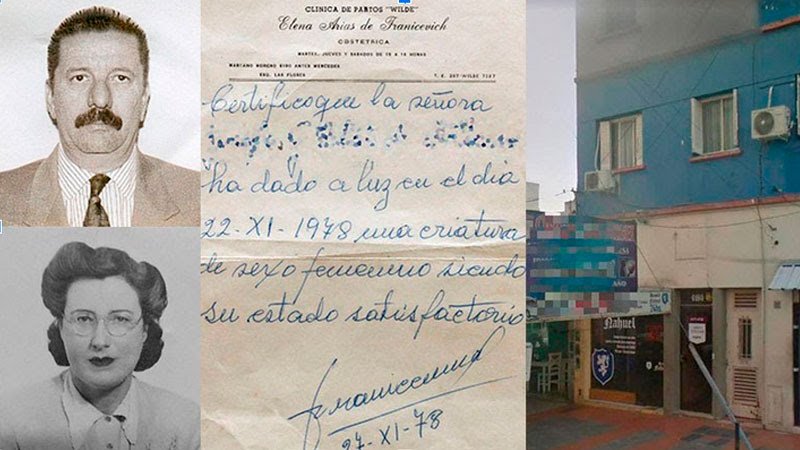 CLINICA DE PARTOS "WILDE"
Elena Arias de Franicevich
OBSTETRICA
MARTES, JUEVES Y SABADOS DE 15 A 18 HORAS
MARIANO MORENO 6190 ANTES MERCEDES
ESQ. LAS FLORES
T. E. 207/WILDE 7257
Certifico que la señora
ha dado a luz en el dia
22-XI-1978 una criatura
de sexo femenino siendo
su estado satisfactorio
27-XI-78
Nahuel